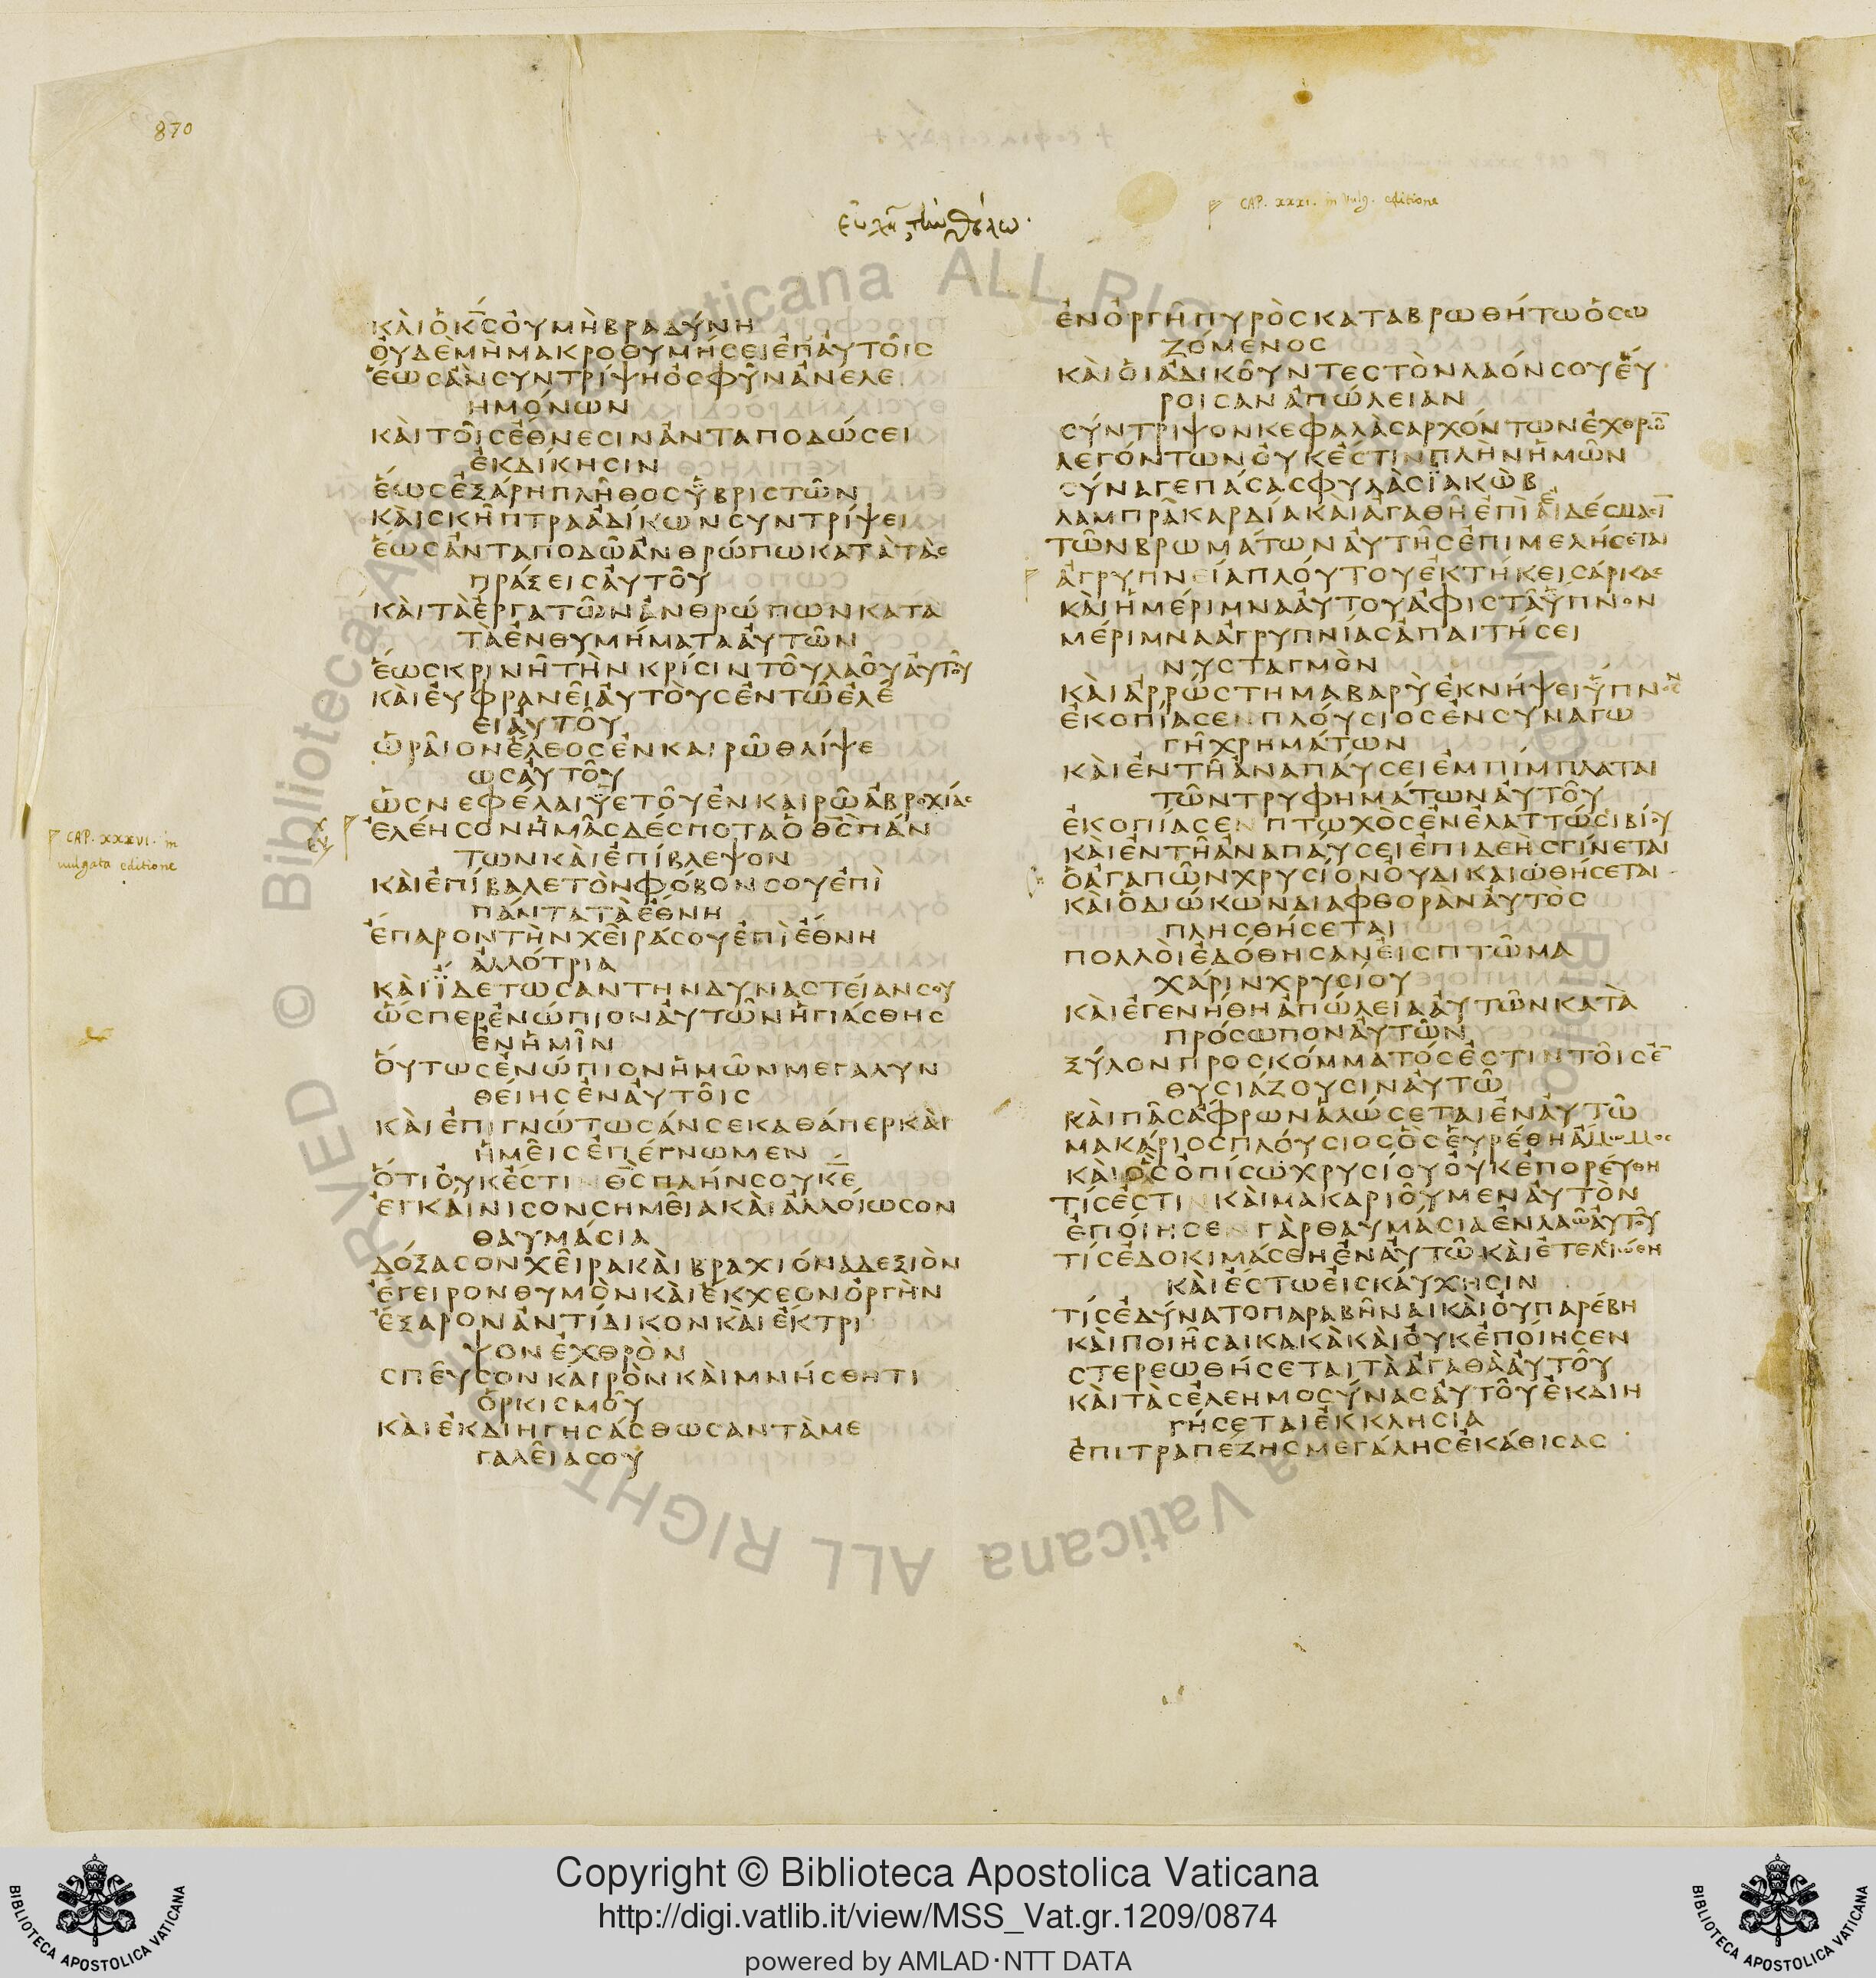 870
CAP. XXXI. in vulg. editione
ΚΑΙΟΚ̅Σ̅ΟΥΜΗΒΡΑΔΥΝΗ
ΟΥΔΕΜΗΜΑΚΡΟΘΥΜΗΣΕΙΕΠΑΥΤΟΙΣ
ΕΩΣΑΝΣΥΝΤΡΙΨΗΟΣΦΥΝΑΝΕΛΕ
ΗΜΟΝΩΝ
ΚΑΙΤΟΙΣΕΘΝΕΣΙΝΑΝΤΑΠΟΔΩΣΕΙ
ΕΚΔΙΚΗΣΙΝ
ΕΩΣΕΞΑΡΗΠΛΗΘΟΣΥΒΡΙΣΤΩΝ
ΚΑΙΣΚΗΠΤΡΑΑΔΙΚΩΝΣΥΝΤΡΙΨΕΙ
ΕΩΣΑΝΤΑΠΟΔΩΑΝΘΡΩΠΩΚΑΤΑΤΑΣ
ΠΡΑΞΕΙΣΑΥΤΟΥ
ΚΑΙΤΑΕΡΓΑΤΩΝΑΝΘΡΩΠΩΝΚΑΤΑ
ΤΑΕΝΘΥΜΗΜΑΤΑΑΥΤΩΝ
ΕΩΣΚΡΙΝΗΤΗΝΚΡΙΣΙΝΤΟΥΛΑΟΥΑΥΤΟΥ
ΚΑΙΕΥΦΡΑΝΕΙΑΥΤΟΥΣΕΝΤΩΕΛΕ
ΕΙΑΥΤΟΥ
ΩΡΑΙΟΝΕΛΕΟΣΕΝΚΑΙΡΩΘΛΙΨΕ
ΩΣΑΥΤΟΥ
ΩΣΝΕΦΕΛΑΙΥΕΤΟΥΕΝΚΑΙΡΩΑΒΡΟΧΙΑΣ
ΕΛΕΗΣΟΝΗΜΑΣΔΕΣΠΟΤΑΟΘ̅Σ̅ΠΑΝ
ΤΩΝΚΑΙΕΠΙΒΛΕΨΟΝ
ΚΑΙΕΠΙΒΑΛΕΤΟΝΦΟΒΟΝΣΟΥΕΠΙ
ΠΑΝΤΑΤΑΕΘΝΗ
ΕΠΑΡΟΝΤΗΝΧΕΙΡΑΣΟΥΕΠΙΕΘΝΗ
ΑΛΛΟΤΡΙΑ
ΚΑΙΪΔΕΤΩΣΑΝΤΗΝΔΥΝΑΣΤΕΙΑΝΣΟΥ
ΩΣΠΕΡΕΝΩΠΙΟΝΑΥΤΩΝΗΓΙΑΣΘΗΣ
ΕΝΗΜΙΝ
ΟΥΤΩΣΕΝΩΠΙΟΝΗΜΩΝΜΕΓΑΛΥΝ
ΘΕΙΗΣΕΝΑΥΤΟΙΣ
ΚΑΙΕΠΙΓΝΩΤΩΣΑΝΣΕΚΑΘΑΠΕΡΚΑΙ
ΗΜΕΙΣΕΠΕΓΝΩΜΕΝ
ΟΤΙΟΥΚΕΣΤΙΝΘ̅Σ̅ΠΛΗΝΣΟΥΚ̅Ε̅
ΕΓΚΑΙΝΙΣΟΝΣΗΜΕΙΑΚΑΙΑΛΛΟΙΩΣΟΝ
ΘΑΥΜΑΣΙΑ
ΔΟΞΑΣΟΝΧΕΙΡΑΚΑΙΒΡΑΧΙΟΝΑΔΕΞΙΟΝ
ΕΓΕΙΡΟΝΘΥΜΟΝΚΑΙΕΚΧΕΟΝΟΡΓΗΝ
ΕΞΑΡΟΝΑΝΤΙΔΙΚΟΝΚΑΙΕΚΤΡΙ
ΨΟΝΕΧΘΡΟΝ
ΣΠΕΥΣΟΝΚΑΙΡΟΝΚΑΙΜΝΗΣΘΗΤΙ
ΟΡΚΙΣΜΟΥ
ΚΑΙΕΚΔΙΗΓΗΣΑΣΘΩΣΑΝΤΑΜΕ
ΓΑΛΕΙΑΣΟΥ
CAP. XXXVI. in
vulgata editione
ΕΝΟΡΓΗΠΥΡΟΣΚΑΤΑΒΡΩΘΗΤΩΟΣΩ
ΖΟΜΕΝΟΣ
ΚΑΙΟΙΑΔΙΚΟΥΝΤΕΣΤΟΝΛΑΟΝΣΟΥΕΥ
ΡΟΙΣΑΝΑΠΩΛΕΙΑΝ
ΣΥΝΤΡΙΨΟΝΚΕΦΑΛΑΣΑΡΧΟΝΤΩΝΕΧΘΡΩ̅
ΛΕΓΟΝΤΩΝΟΥΚΕΣΤΙΝΠΛΗΝΗΜΩΝ
ΣΥΝΑΓΕΠΑΣΑΣΦΥΛΑΣΪΑΚΩΒ
ΛΑΜΠΡΑΚΑΡΔΙΑΚΑΙΑΓΑΘΗΕΠΙΑΙΔΕΣΜΑΣΙ̅
ΤΩΝΒΡΩΜΑΤΩΝΑΥΤΗΣΕΠΙΜΕΛΗΣΕΤΑΙ
ΑΓΡΥΠΝΕΙΑΠΛΟΥΤΟΥΕΚΤΗΚΕΙΣΑΡΚΑΣ
ΚΑΙΗΜΕΡΙΜΝΑΑΥΤΟΥΑΦΙΣΤΑΥΠΝΟΝ
ΜΕΡΙΜΝΑΑΓΡΥΠΝΙΑΣΑΠΑΙΤΗΣΕΙ
ΝΥΣΤΑΓΜΟΝ
ΚΑΙΑΡΡΩΣΤΗΜΑΒΑΡΥΕΚΝΗΨΕΙΥΠΝΟΣ
ΕΚΟΠΙΑΣΕΝΠΛΟΥΣΙΟΣΕΝΣΥΝΑΓΩ
ΓΗΧΡΗΜΑΤΩΝ
ΚΑΙΕΝΤΗΑΝΑΠΑΥΣΕΙΕΜΠΙΜΠΛΑΤΑΙ
ΤΩΝΤΡΥΦΗΜΑΤΩΝΑΥΤΟΥ
ΕΚΟΠΙΑΣΕΝΠΤΩΧΟΣΕΝΕΛΑΤΤΩΣΙΒΙΟΥ
ΚΑΙΕΝΤΗΑΝΑΠΑΥΣΕΙΕΠΙΔΕΗΣΓΙΝΕΤΑΙ
ΟΑΓΑΠΩΝΧΡΥΣΙΟΝΟΥΔΙΚΑΙΩΘΗΣΕΤΑΙ
ΚΑΙΟΔΙΩΚΩΝΔΙΑΦΘΟΡΑΝΑΥΤΟΣ
ΠΛΗΣΘΗΣΕΤΑΙ
ΠΟΛΛΟΙΕΔΟΘΗΣΑΝΕΙΣΠΤΩΜΑ
ΧΑΡΙΝΧΡΥΣΙΟΥ
ΚΑΙΕΓΕΝΗΘΗΑΠΩΛΕΙΑΑΥΤΩΝΚΑΤΑ
ΠΡΟΣΩΠΟΝΑΥΤΩΝ
ΞΥΛΟΝΠΡΟΣΚΟΜΜΑΤΟΣΕΣΤΙΝΤΟΙΣΕ̅
ΘΥΣΙΑΖΟΥΣΙΝΑΥΤΩ
ΚΑΙΠΑΣΑΦΡΩΝΑΛΩΣΕΤΑΙΕΝΑΥΤΩ
ΜΑΚΑΡΙΟΣΠΛΟΥΣΙΟΣΟΣΕΥΡΕΘΗΑΜΩΜΟΣ
ΚΑΙΟΣΟΠΙΣΩΧΡΥΣΙΟΥΟΥΚΕΠΟΡΕΥΘΗ
ΤΙΣΕΣΤΙΝΚΑΙΜΑΚΑΡΙΟΥΜΕΝΑΥΤΟΝ
ΕΠΟΙΗΣΕΝΓΑΡΘΑΥΜΑΣΙΑΕΝΛΑΩΑΥΤΟΥ
ΤΙΣΕΔΟΚΙΜΑΣΘΗΕΝΑΥΤΩΚΑΙΕΤΕΛΕΙΩΘΗ
ΚΑΙΕΣΤΩΕΙΣΚΑΥΧΗΣΙΝ
ΤΙΣΕΔΥΝΑΤΟΠΑΡΑΒΗΝΑΙΚΑΙΟΥΠΑΡΕΒΗ
ΚΑΙΠΟΙΗΣΑΙΚΑΚΑΚΑΙΟΥΚΕΠΟΙΗΣΕΝ
ΣΤΕΡΕΩΘΗΣΕΤΑΙΤΑΑΓΑΘΑΑΥΤΟΥ
ΚΑΙΤΑΣΕΛΕΗΜΟΣΥΝΑΣΑΥΤΟΥΕΚΔΙΗ
ΓΗΣΕΤΑΙΕΚΚΛΗΣΙΑ
ΕΠΙΤΡΑΠΕΖΗΣΜΕΓΑΛΗΣΕΚΑΘΙΣΑΣ
© Biblioteca Apostolica Vaticana ALL RIGHTS RESERVED
Copyright © Biblioteca Apostolica Vaticana
http://digi.vatlib.it/view/MSS_Vat.gr.1209/0874
powered by AMLAD·NTT DATA
BIBLIOTECA APOSTOLICA VATICANA
BIBLIOTECA APOSTOLICA VATICANA